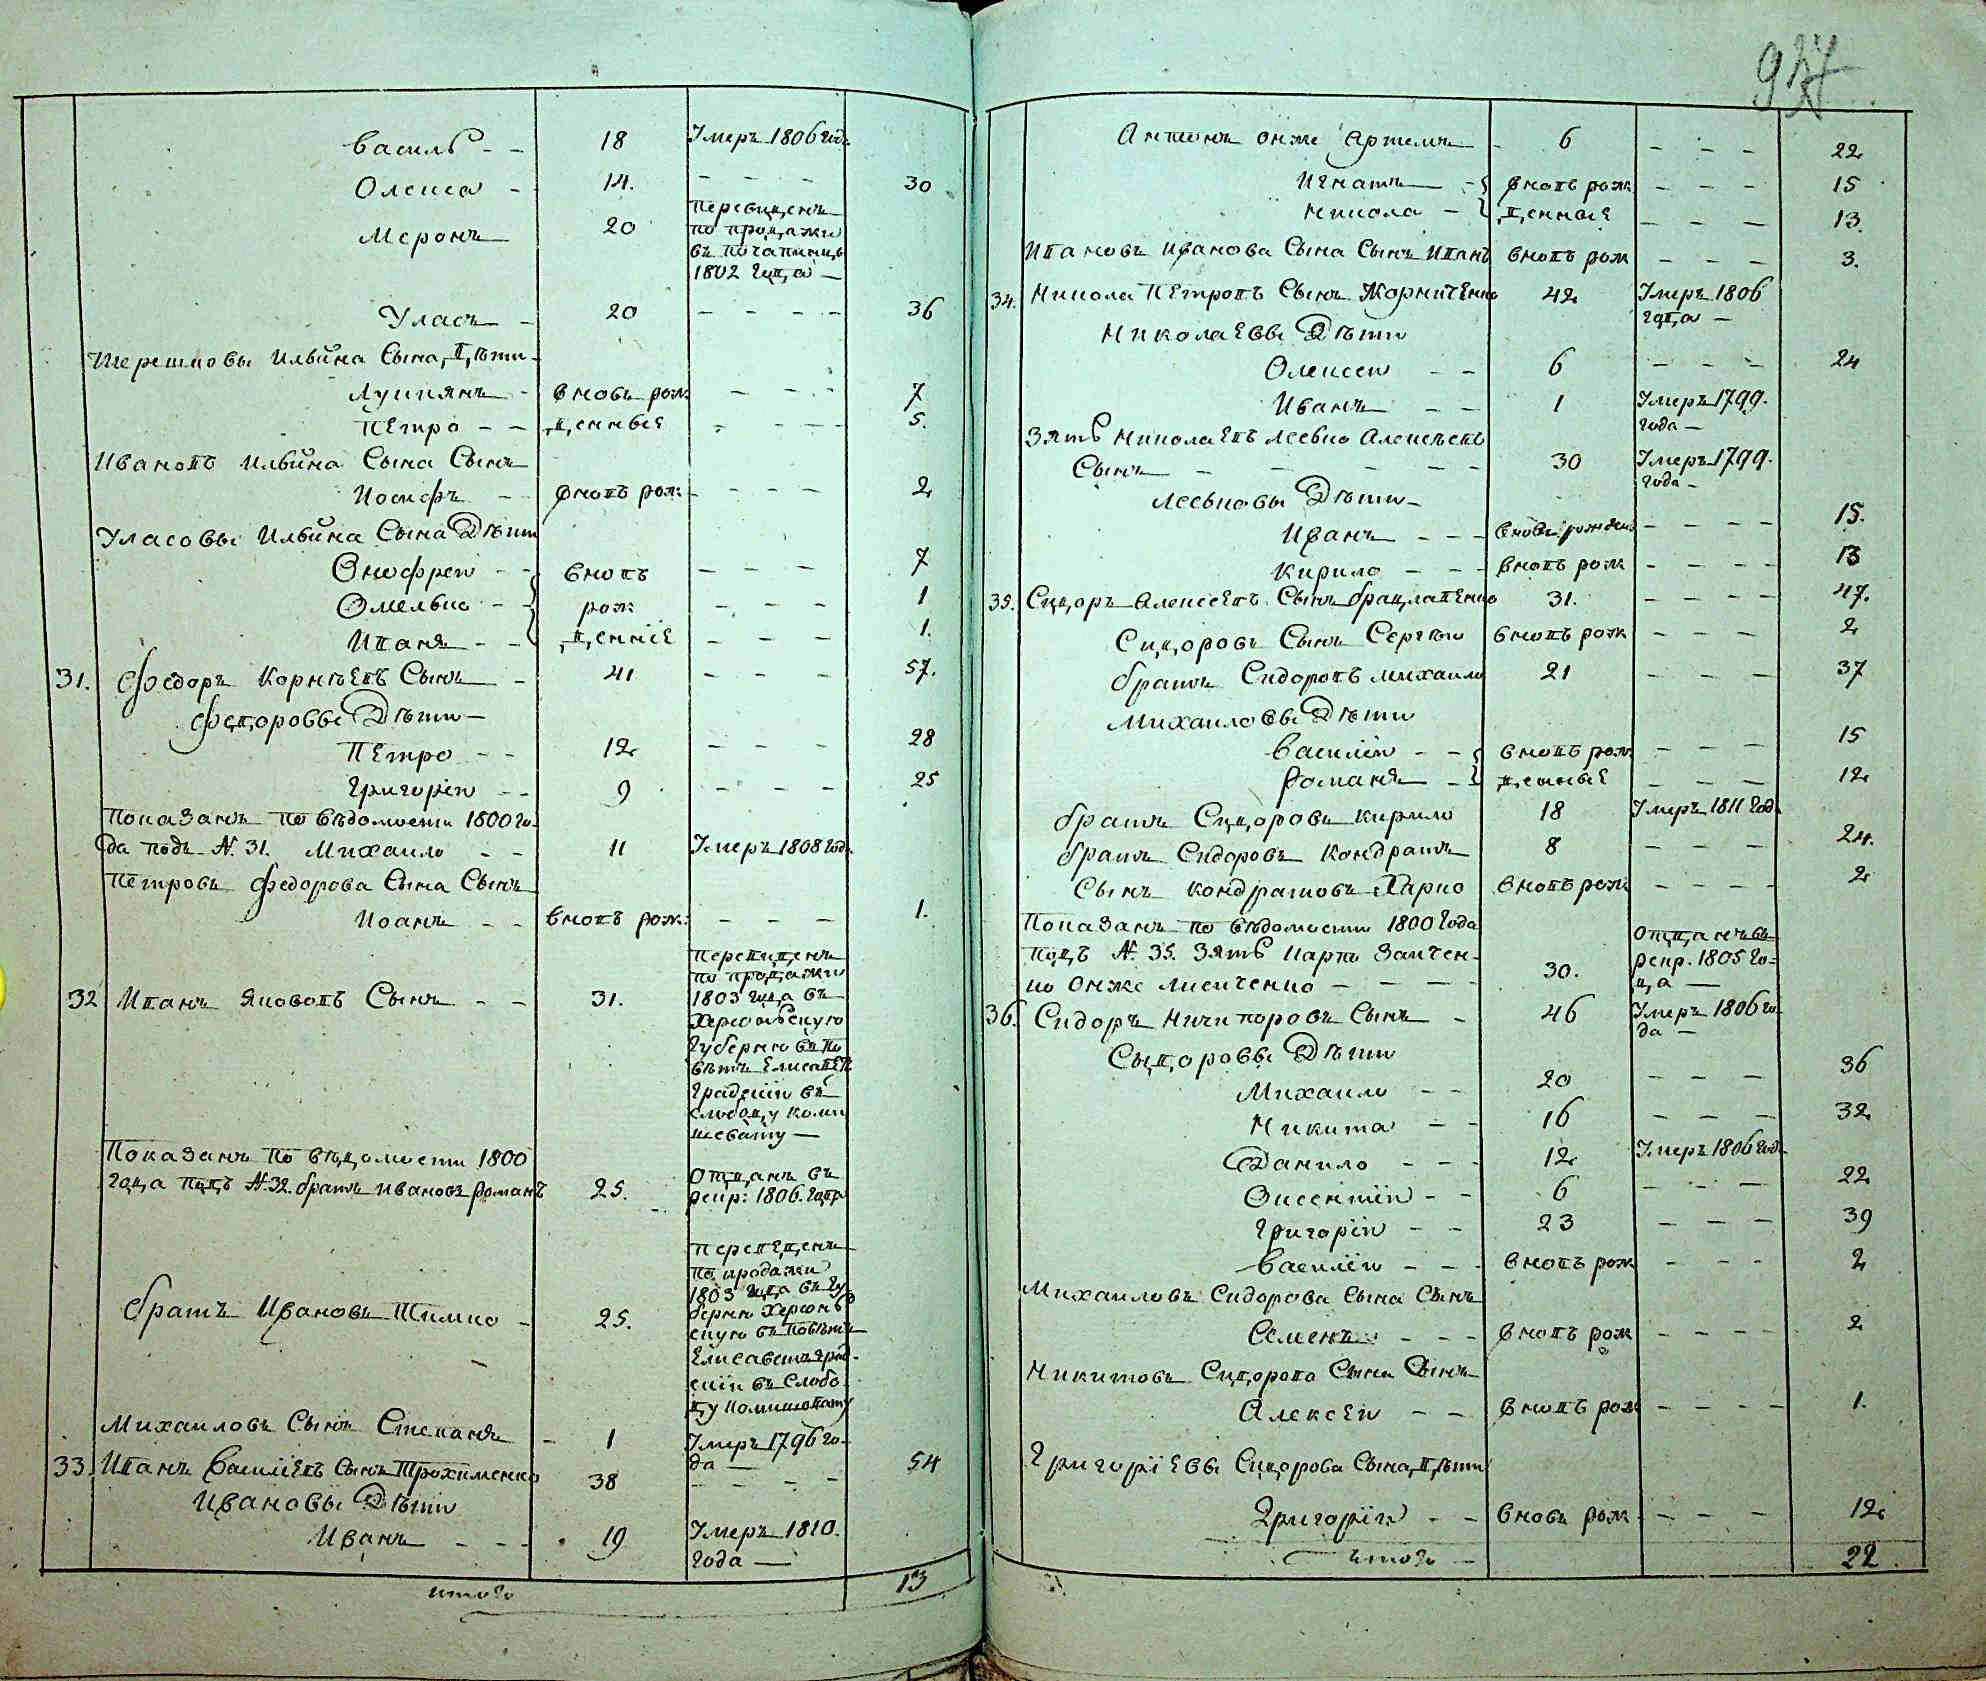 927
Василь - - 18 Умеръ 1806 год:
Олекса - 14. - - - 30
Меронъ 20 Переведенъ
по продажи
въ Почапинцы
1802 года —
Уласъ - 20 - - - - 36
Терешковы Ильина Сына Дѣти
Лукиянъ - вновь рож - - - 7
Петро - - денные - - - - 5.
Ивановъ Ильина Сына Сынъ
Иосифъ - вновь рож: - - - - 2
Уласовы Ильина Сына Дѣти
Онофрей - - вновь - - - 7
Омелько - рож - - - 1
Иванъ - - денние - - - 1.
31. Федоръ Корнѣевъ Сынъ - 41 - - - 57.
Федоровы Дѣти —
Петро - - 12 - - - 28
Григорій - - 9 - - - - 25
Показанъ по вѣдомости 1800 го-
да подъ №. 31. Михаило - - 11 Умеръ 1808 год:
Петровъ Федорова Сына Сынъ
Иоанъ - - вновь рож: - - - 1.
32 Иванъ Якововъ Сынъ - - 31. Переведенъ
по продажи
1803 года въ
Херсонскую
Губернию въ по
вѣтъ Елисавет
градский въ
слободу Коми
шевату —
Показанъ по вѣдомости 1800
года подъ №. 32. братъ Ивановъ романъ 25. Отданъ въ
рекр: 1806. года
братъ Ивановъ Тимко - 25. Переведенъ
по продажи
1803 года въ Гу
бернию Херсонь
скую въ повѣтъ
Елисаветъград
ский въ Слобо
ду Комишевату
Михаиловъ Сынъ Степанъ - 1 Умеръ 1796 го-
да —
33. Иванъ Василіевъ Сынъ Трохименко 38 - - - 54
Ивановы Дѣти
Иванъ - - - 19 Умеръ 1810.
года —
итого 13
Антонъ онже Артемъ - 6 - - - 22
Игнатъ - вновь рож - - - 15
Никола - денные - - - 13.
Ивановъ Иванова Сына Сынъ Иванъ вновь рож - - - 3.
34. Никола Петровъ Сынъ Корниенко 42 Умеръ 1806
года —
Николаевы Дѣти
Олексей - - 6 - - - - 24
Иванъ - - 1 Умеръ 1799.
года —
Зять Николаевъ Леонтий Алексѣевъ
Сынъ - - - - - 30 Умеръ 1799.
года -
Дѣти -
Иванъ - - - вновь рожден: - - - - 15.
Кирило - - - вновь рож - - - - 13
35. Сидоръ Алексеевъ Сынъ брацлавенко 31. - - - - 47.
Сидоровъ Сынъ Сергѣй вновь рож - - - 2
братъ Сидоровъ михаило 21 - - - 37
Михаиловы Дѣти
Василій - - вновь рож - - - 15
Романъ - денные - - - 12
братъ Сидоровъ кирило 18 Умеръ 1811 год:
братъ Сидоровъ Кондратъ 8 - - - 24.
Сынъ Кондратовъ Харко вновь рож - - - - 2
Показанъ по вѣдомости 1800 года
подъ №. 35. Зять Карпъ Заичен-
ко онже Лисиченко - - - - 30. Отданъ въ
рекр. 1805 го-
да —
36. Сидоръ Ничипоровъ Сынъ - 46 Умеръ 1806 го-
да —
Сыдоровы Дѣти
Михаило - - 20 - - - 36
Никита - - 16 - - - 32
Данило - - - 12 Умеръ 1806 год:
Оксентий - - 6 - - - 22
Григорій - - 23 - - - 39
Василій - - - вновь рож - - - 2
Михаиловъ Сидорова Сына Сынъ
Семенъ - - - вновь рож - - - - 2
Никитовъ Сидорова Сына Сынъ
Алексей - - вновь рож - - - - 1.
Григоріевы Сидорова Сына Дѣти
Григорій - - вновь рож - - - 12
итого - 22